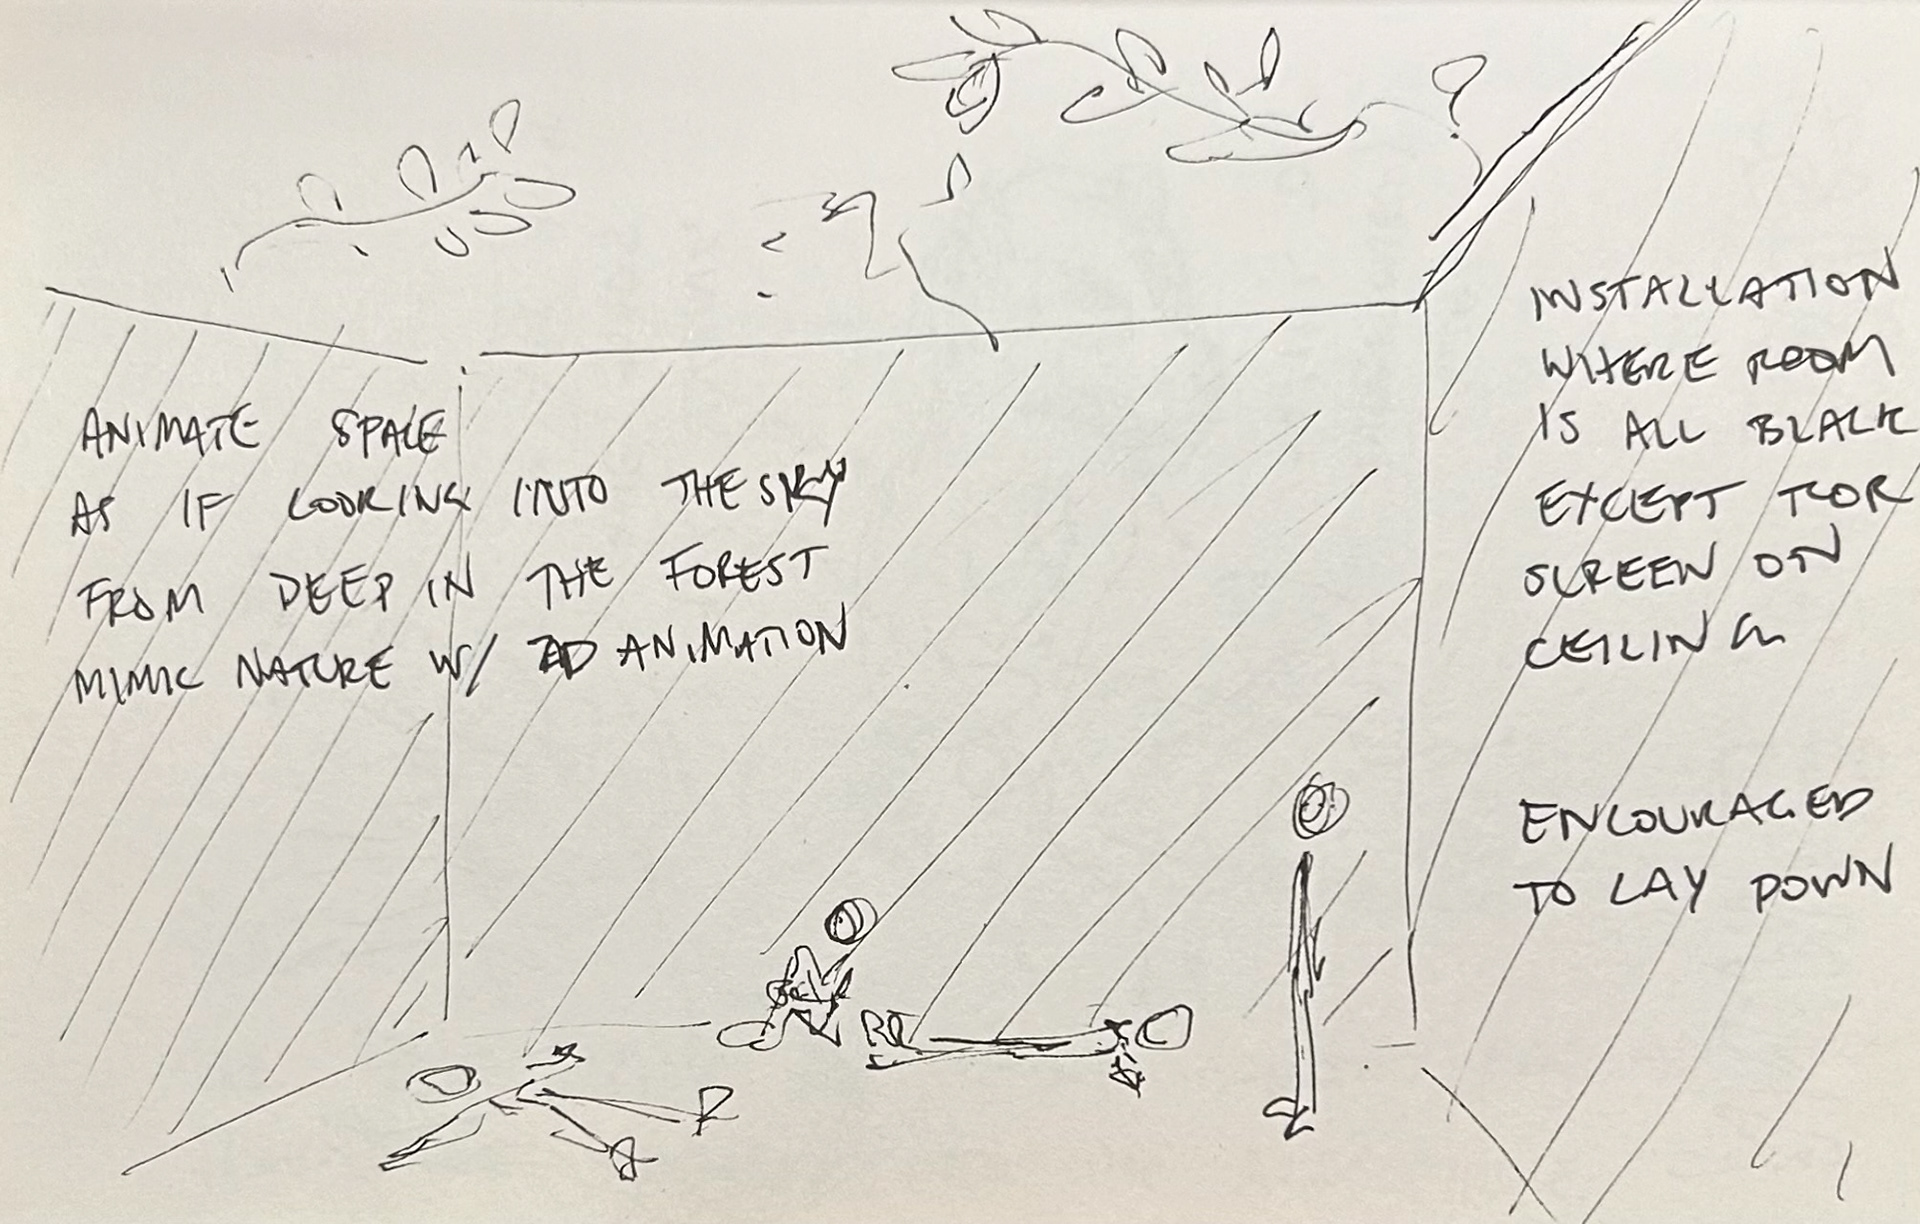 ANIMATE SPACE
AS IF LOOKING INTO THE SKY
FROM DEEP IN THE FOREST
MIMIC NATURE W/ 2D ANIMATION
INSTALLATION
WHERE ROOM
IS ALL BLACK
EXCEPT FOR
SCREEN ON
CEILING
ENCOURAGED
TO LAY DOWN